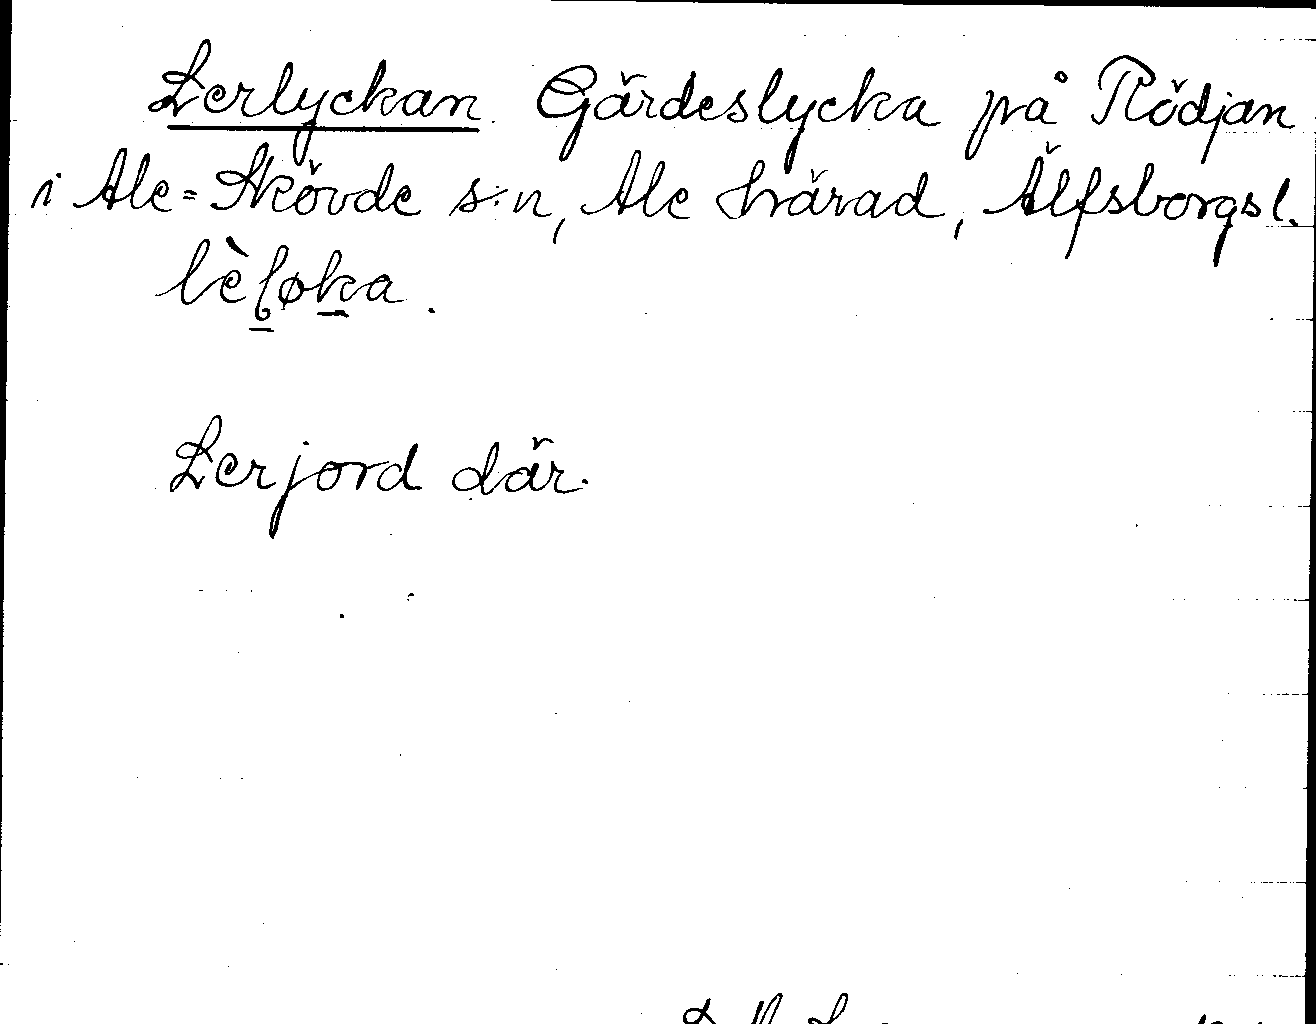 Lerlyckan. Gärdeslycka på Rödjan
i Ale=Skövde s:n, Ale härad, Älfsborgs l.
lèl̠øk̠a.
Lerjord där.